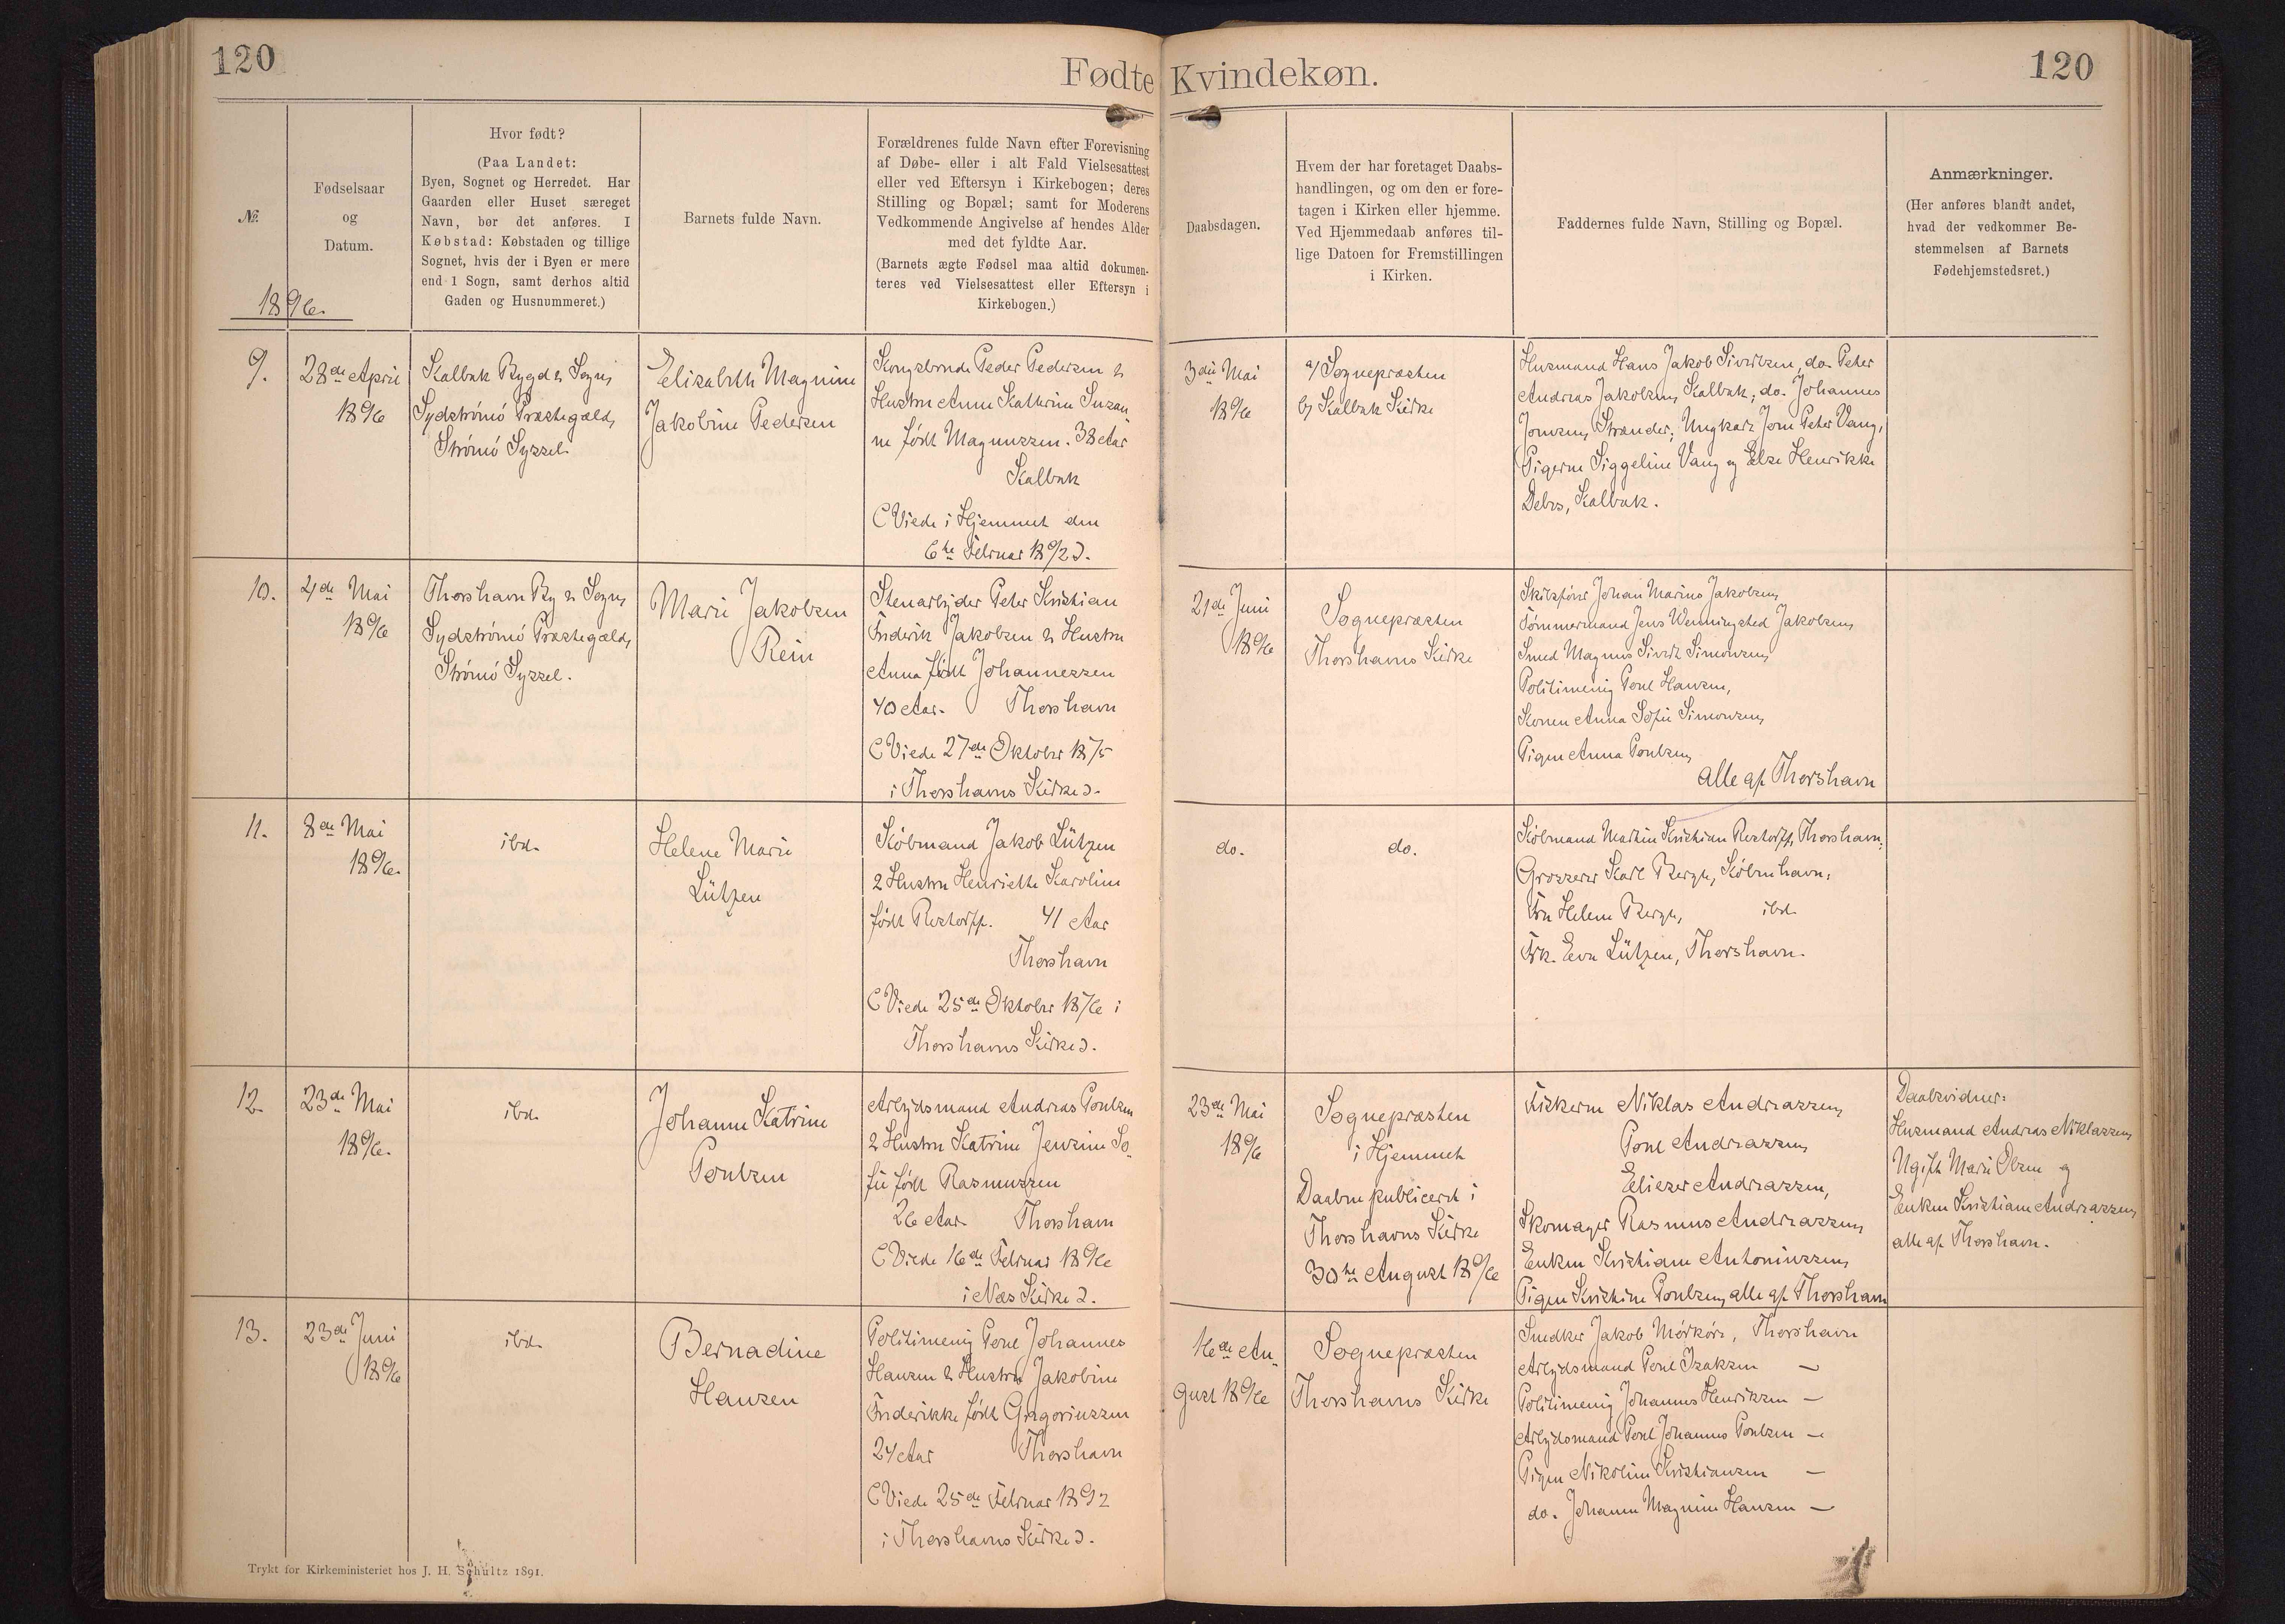 120
Fødte Kvindekøn.
120
№.
1896.
Fødselsaar
og
Datum.
Hvor født?
(Paa Landet:
Byen, Sognet og Herredet. Har
Gaarden eller Huset særeget
Navn, bør det anføres. I
Købstad: Købstaden og tillige
Sognet, hvis der i Byen er mere
end 1 Sogn, samt derhos altid
Gaden og Husnummeret.)
Barnets fulde Navn.
Forældrenes fulde Navn efter Forevisning
af Døbe- eller i alt Fald Vielsesattest
eller ved Eftersyn i Kirkebogen; deres
Stilling og Bopæl; samt for Moderens
Vedkommende Angivelse af hendes Alder
med det fyldte Aar.
(Barnets ægte Fødsel maa altid dokumen-
teres ved Vielsesattest eller Eftersyn i
Kirkebogen.)
Daabsdagen.
Hvem der har foretaget Daabs-
handlingen, og om den er fore-
tagen i Kirken eller hjemme.
Ved Hjemmedaab anføres til-
lige Datoen for Fremstillingen
i Kirken.
Faddernes fulde Navn, Stilling og Bopæl.
Anmærkninger.
(Her anføres blandt andet,
hvad der vedkommer Be-
stemmelsen af Barnets
Fødehjemstedsret.)
9.
28de April
1896
Kalbak Bygd & Sogn,
Sydströmö Præstegæld,
Strömö Syssel.
Elisabeth Magnine
Jakobine Pedersen
Kongsbonde Peder Pedersen &
Hustru Anne Kathrine Suzan
ne født Magnussen. 38 Aar
Kalbak
(Viede i Hjemmet den
6te Februar 1892).
3die Mai
1896
a/ Sognepræsten
b/ Kalbak Kirke
Husmand Hans Jakob Sivertsen, do. Peter
Andreas Jakobsen, Kalbak; do. Johannes
Joensen, Strænder; Ungkarl Joen Peter Vang,
Pigerne Siggeline Vang og Else Henrikke
Debes, Kalbak.
10.
4de Mai
1896
Thorshavn By & Sogn,
Sydströmö Præstegæld,
Strömö Syssel.
Marie Jakobsen
Rein
Stenarbejder Peter Kristian
Frederik Jakobsen & Hustru
Anna født Johannessen
40 Aar. Thorshavn
(Viede 27de Oktober 1875
i Thorshavns Kirke).
21de Juni
1896
Sognepræsten
Thorshavns Kirke
Skibsfører Johan Marius Jakobsen,
Tömmermand Jens Wenningsted Jakobsen,
Smed Magnus Sivert Simonsen,
Politimenig Poul Hansen,
Konen Anna Sofie Simonsen,
Pigen Anna Poulsen,
alle af Thorshavn
11.
8de Mai
1896.
ibd.
Helene Marie
Lützen
Köbmand Jakob Lützen
& Hustru Henriette Karoline
født Restorff. 41 Aar
Thorshavn
(Viede 25de Oktober 1876 i
Thorshavns Kirke).
do.
do.
Köbmand Martin Kristian Restorff, Thorshavn;
Grosserer Karl Bergh, Köbenhavn;
Fru Helene Bergh, ibd.
Frk. Eva Lützen, Thorshavn.
12.
23de Mai
1896.
ibd.
Johanne Katrine
Poulsen
Arbejdsmand Andreas Poulsen
& Hustru Katrine Jensine So-
fie født Rasmussen
26 Aar. Thorshavn
(Viede 16de Februar 1896
i Næs Kirke).
23de Mai
1896
Sognepræsten
i Hjemmet
Daaben publiceret i
Thorshavns Kirke
30te August 1896
Fiskerne Niklas Andreassen,
Poul Andreassen,
Eliezer Andreassen,
Skomager Rasmus Andreassen,
Enken Kristiane Antoniussen,
Pigen Kristine Poulsen, alle af Thorshavn
Daabsvidner:
Husmand Andreas Niklassen,
Ugift Marie Olsen og
Enken Kristiane Andreassen,
alle af Thorshavn.
13.
23de Juni
1896
ibd.
Bernadine
Hansen
Politimenig Poul Johannes
Hansen & Hustru Jakobine
Frederikke født Gregoriussen
24 Aar Thorshavn
(Viede 25de Februar 1892
i Thorshavns Kirke).
16de Au-
gust 1896
Sognepræsten
Thorshavns Kirke
Snedker Jakob Mörköre, Thorshavn
Arbejdsmand Poul Isaksen —
Politimenig Johannes Henriksen —
Arbejdsmand Poul Johannes Poulsen —
Pigen Nikoline Kristiansen —
do. Johanne Magnine Hansen —
Trykt for Kirkeministeriet hos J. H. Schultz 1891.